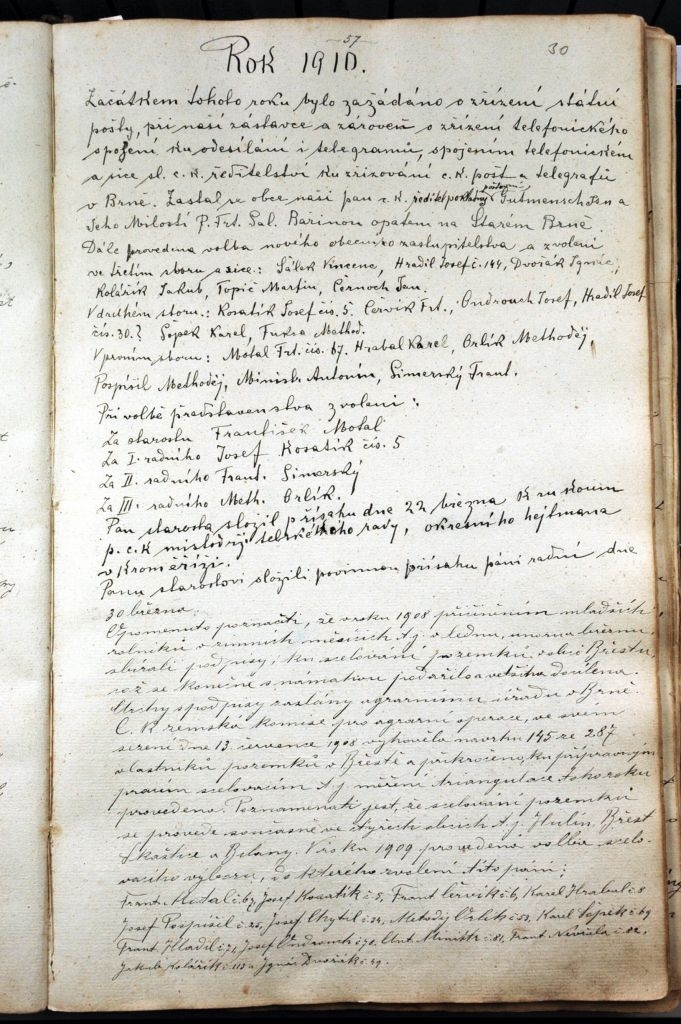 57
30
Rok 1910.
Začátkem tohoto roku bylo zažádáno o zřízení státní
pošty, při naší zástavce a zároveň o zřízení telefonického
spojení ku odesílání i telegramů, spojením telefonickém
a sice sl. c. k. ředitelství ku zřizování c. k. pošt a telegrafů
v Brně. Zastal se obce naší pan c. k. ředitel Gutmensch Jan a
Jeho Milostí P. Frt. Sal. Bařinou opatem na Starém Brně.
Dále provedena volba nového obecního zastupitelstva a zvoleni
ve třetím sboru a sice: Sálek Vincenc, Hradil Josef č. 144, Dvořák Ignác,
Kolářík Jakub, Topič Martin, Černoch Jan.
V druhém sboru: Kosatík Josef čís. 5. Červík Frt., Ondrouch Josef, Hradil Josef
čís. 30. Sopek Karel, Fuksa Method.
V prvním sboru: Motal Frt. čís. 67. Hrabal Karel, Orlík Methoděj,
Pospíšil Methoděj, Ministr Antonín, Simerský Frant.
Při volbě představenstva zvoleni:
Za starostu František Motal
Za I. radního Josef Kosatík čís. 5
Za II. radního Frant. Simerský
Za III. radního Meth. Orlík.
Pan starosta složil přísahu dne 22 března k rukoum
p. c. k. místodržitelského rady, okresního hejtmana
v Kroměříži.
Panu starostovi složili povinnou přísahu páni radní dne
30 března.
Opomenuto poznačiti, že v roku 1908 přičiněním mladších
rolníků v zimních měsících t. j. v lednu, unoru březnu,
sbírali podpisy ku scelování pozemků v obci Břestu,
což se konečně s námahou podařilo a většina docílena.
Archy s podpisy zaslány agrarnímu úřadu v Brně.
C. K. zemská komise pro agrarní operace, ve svém
sezení dne 13. července 1908 vyhověla navrhu 145 ze 287
vlastníků pozemků v Břestě a přikročeno ku přípravným
pracím scelovacím t. j. měření triangulace toho roku
provedeno. Poznamenati jest, že scelování pozemků
se provede současně ve čtyřech obcích t. j. Hulín, Břest
Skaštice a Bílany. V roku 1909 provedena volba scelo-
vacího výboru, do kterého zvoleni tito páni;
Frant. Motal č. 67, Josef Kosatík č. 5, Frant. Červík č. 6, Karel Hrabal č. 8
Josef Pospíšil č. 25, Josef Chytil č. 34, Metoděj Orlík č. 53, Karel Sopek č. 69
Frant. Hladil č. 71, Josef Ondrouch č. 70, Ant. Ministr č. 81, Frant. Nevřala č. 82,
Jakub Kolářík č. 113 a Ignác Dvořák č. 39.